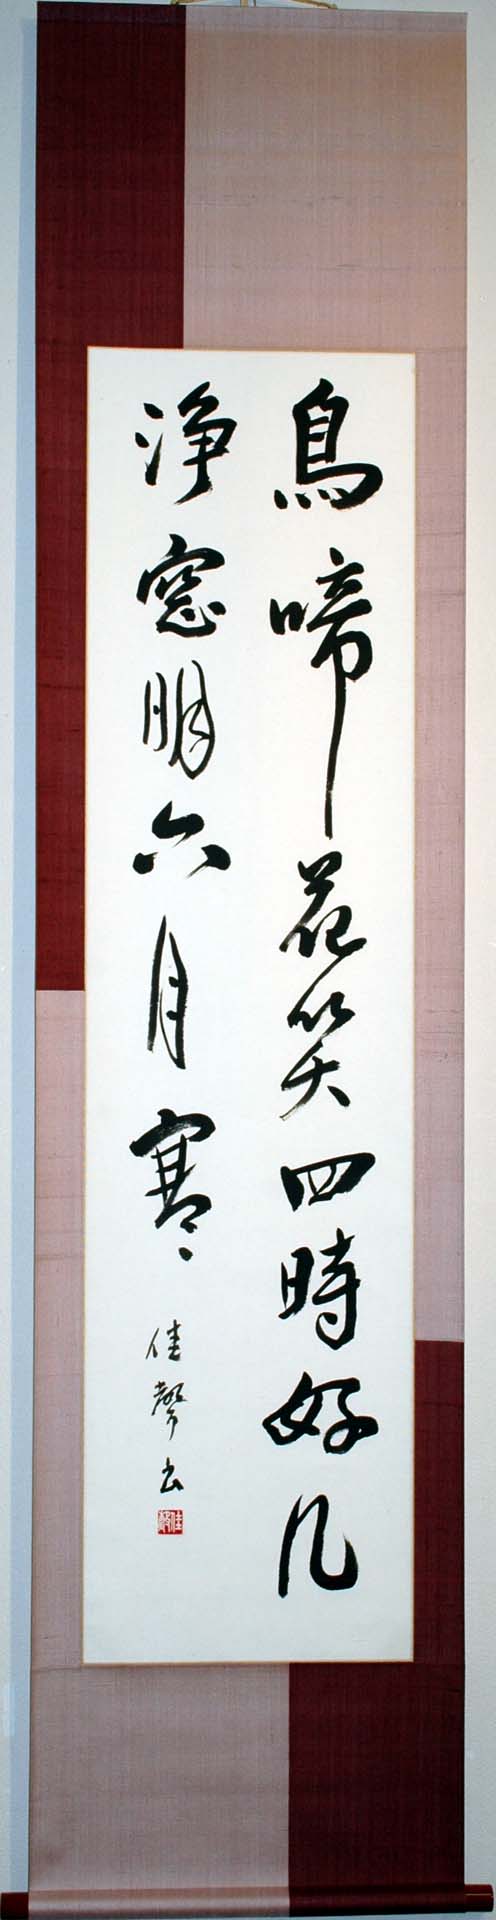 鳥啼花笑四時好几
浄窓明六月寒
佳馨書